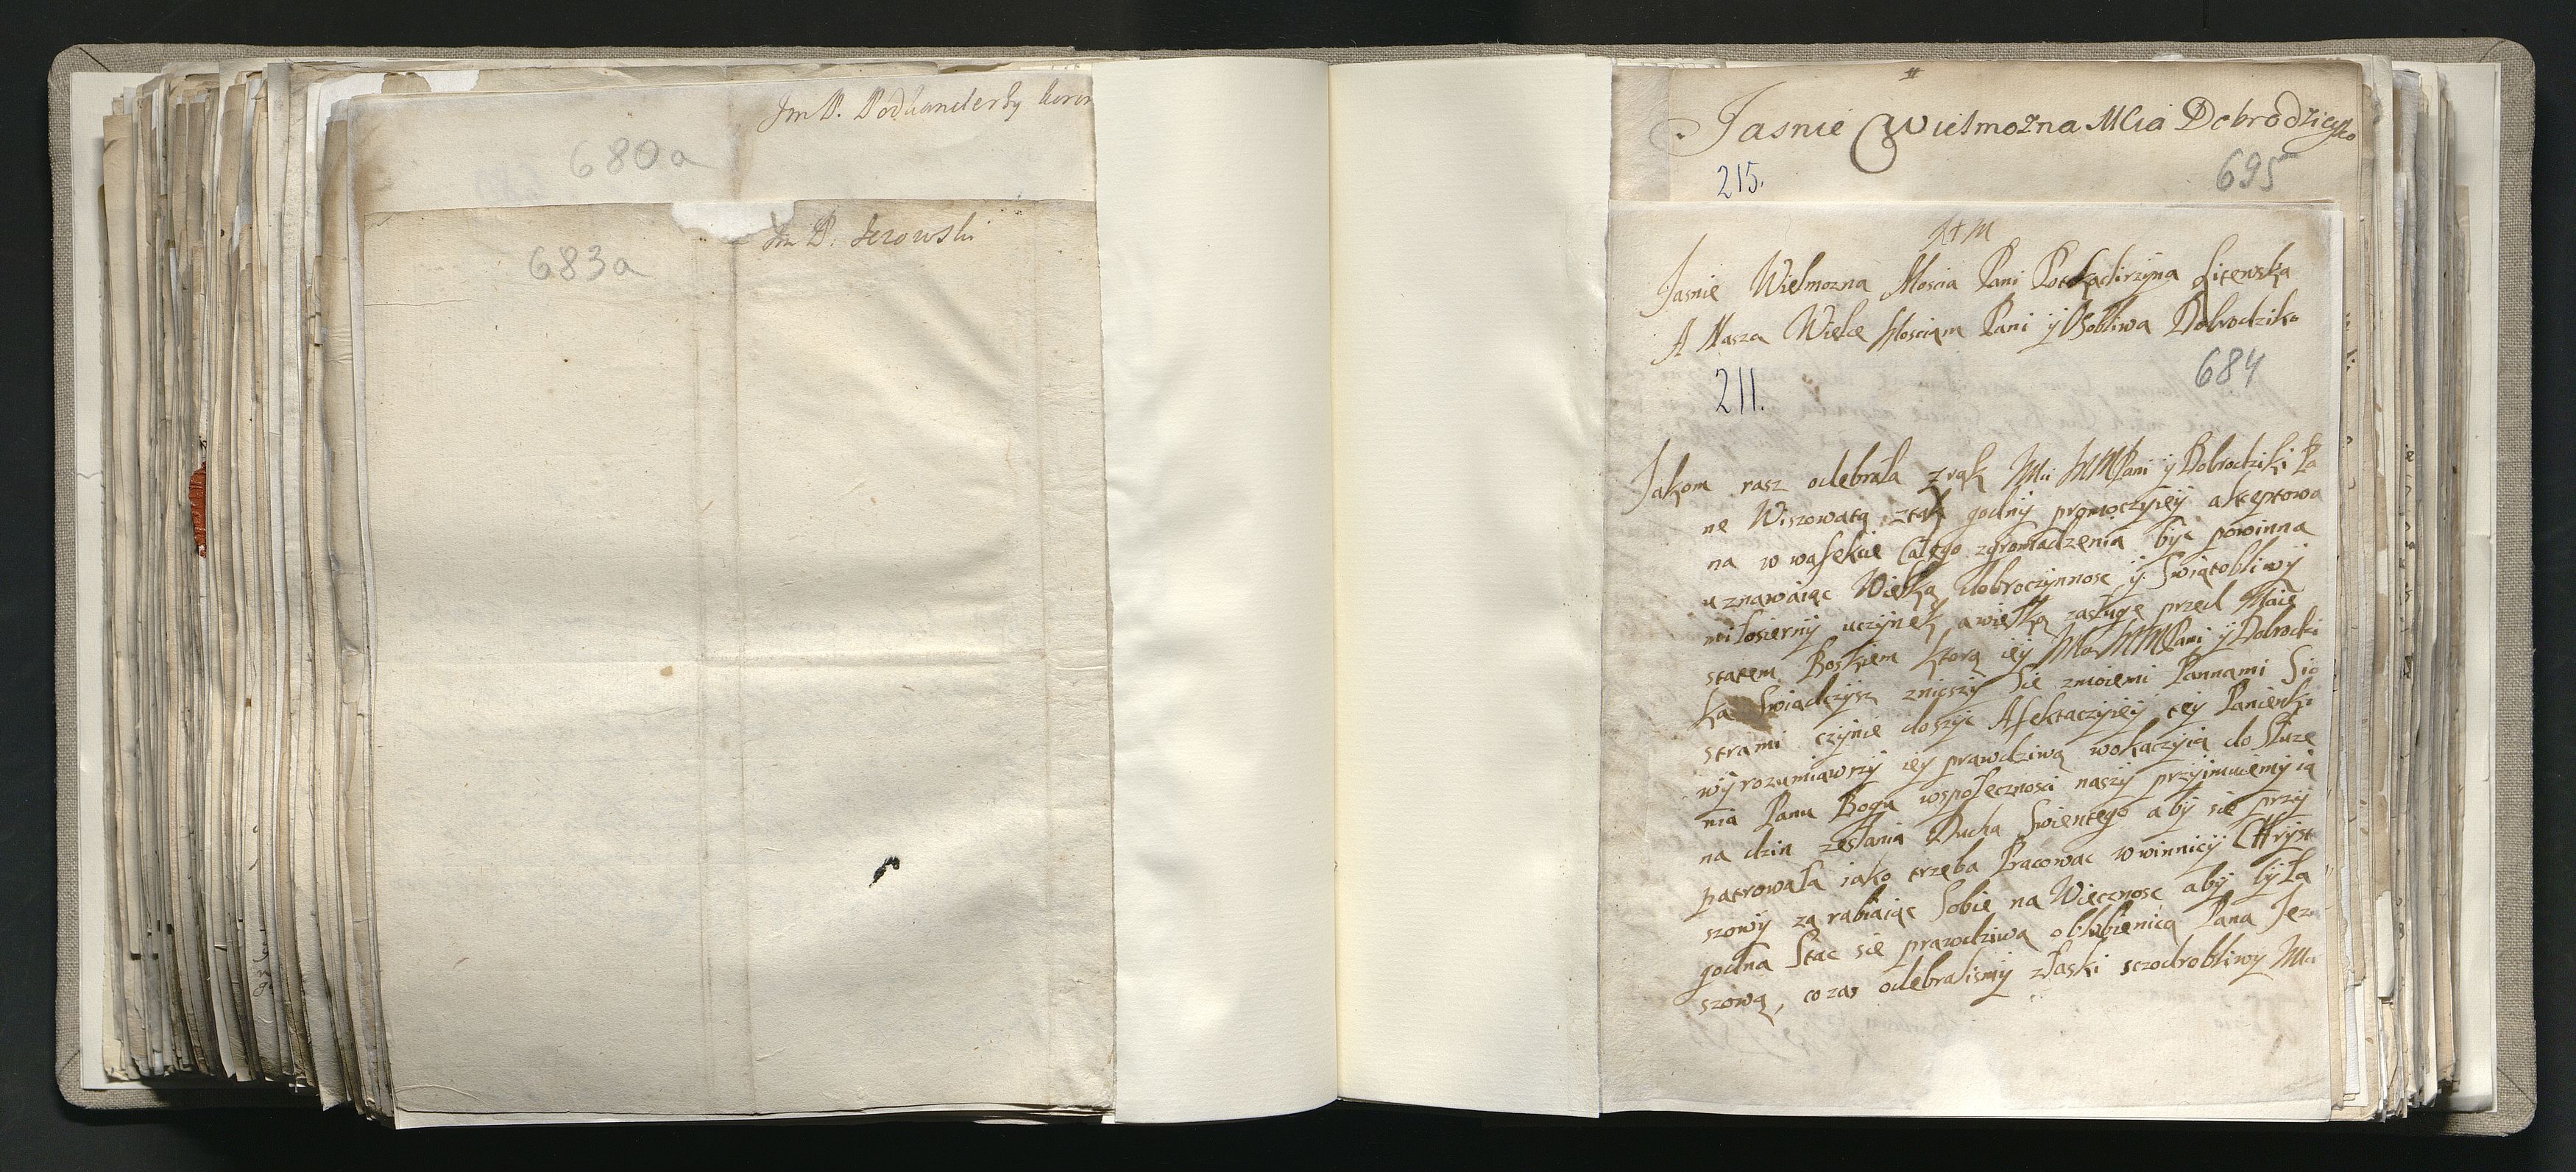 Jm P. Podkanclerzy Koron
680a
Jm P. Jezowski
683a
Jasnie Wielmozna Mcia Dobrodzieyko
215.
695
Jasnie Wielmozna Moscia Pani Potkąclirzyna Litewska
A Nasza Wielce Mosciąm Pani ÿ Osobliwa Dobrodzika
684
211.
Jakom rasz odebrała z rąk Mci MMPani ÿ Dobrodziki Pa
ne Wiszowatą ztak godnÿ promoczyiéÿ akceptowa
na w wafekcie Całego zgromadzenia bÿc powinna
uznawaiąc Wielką dobroczynnosc ÿ Swiątobliwÿ
miłosiernÿ uczÿnek a wielką zasługę przed Maie
statem Boskiem ktorą iéÿ MMPani ÿ Dobrodzi
ka Swiadczysz zniosszÿ sie zmoiemi Pannami Sio
strami czÿnie doszÿc Afektaczyiéÿ téÿ Panienki
wÿrozumiawszÿ iéÿ prawdziwą wokaczyią do Słuze
nia Panu Bogu wspołecznosci naszÿ przÿimuiemÿ ią
na dzin zesłania Ducha Swientego abÿ sie przÿ
patrowała iako trzeba Pracowac w winnicÿ Chrÿst
szowÿ zarabiaiąc Sobie na Wiecznosc abÿ bÿła
godna Stac sie prawdziwą oblubienicą Pana Jezu
szową, co zas odebralismÿ złaski sczodrobliwÿ